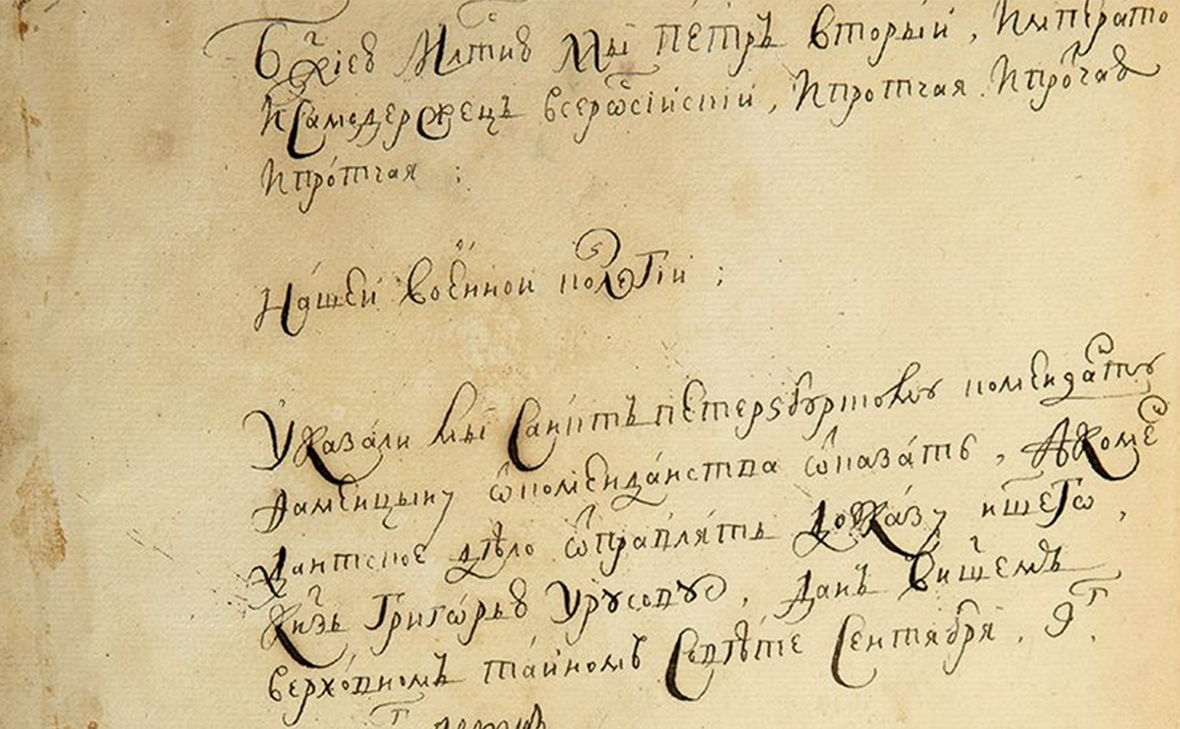 Бжіею Млтию Мы пЕтръ вторыи, Императо
И Самодержецъ всерѡсіискіи, Ипротчая. Ипрочая
Ипротчая :
Нашеи военнои колегіи ;
Указали мы Санктъ петерѕбургскому комендату
ѿ комендантства ѿказать, А коме
дантское дѣло ѿправлять до указу ншегѡ,
Кнзь Григорью Урусову, Данъ в нашемъ
верховномъ таиномъ Совѣте Сентября. 9г.